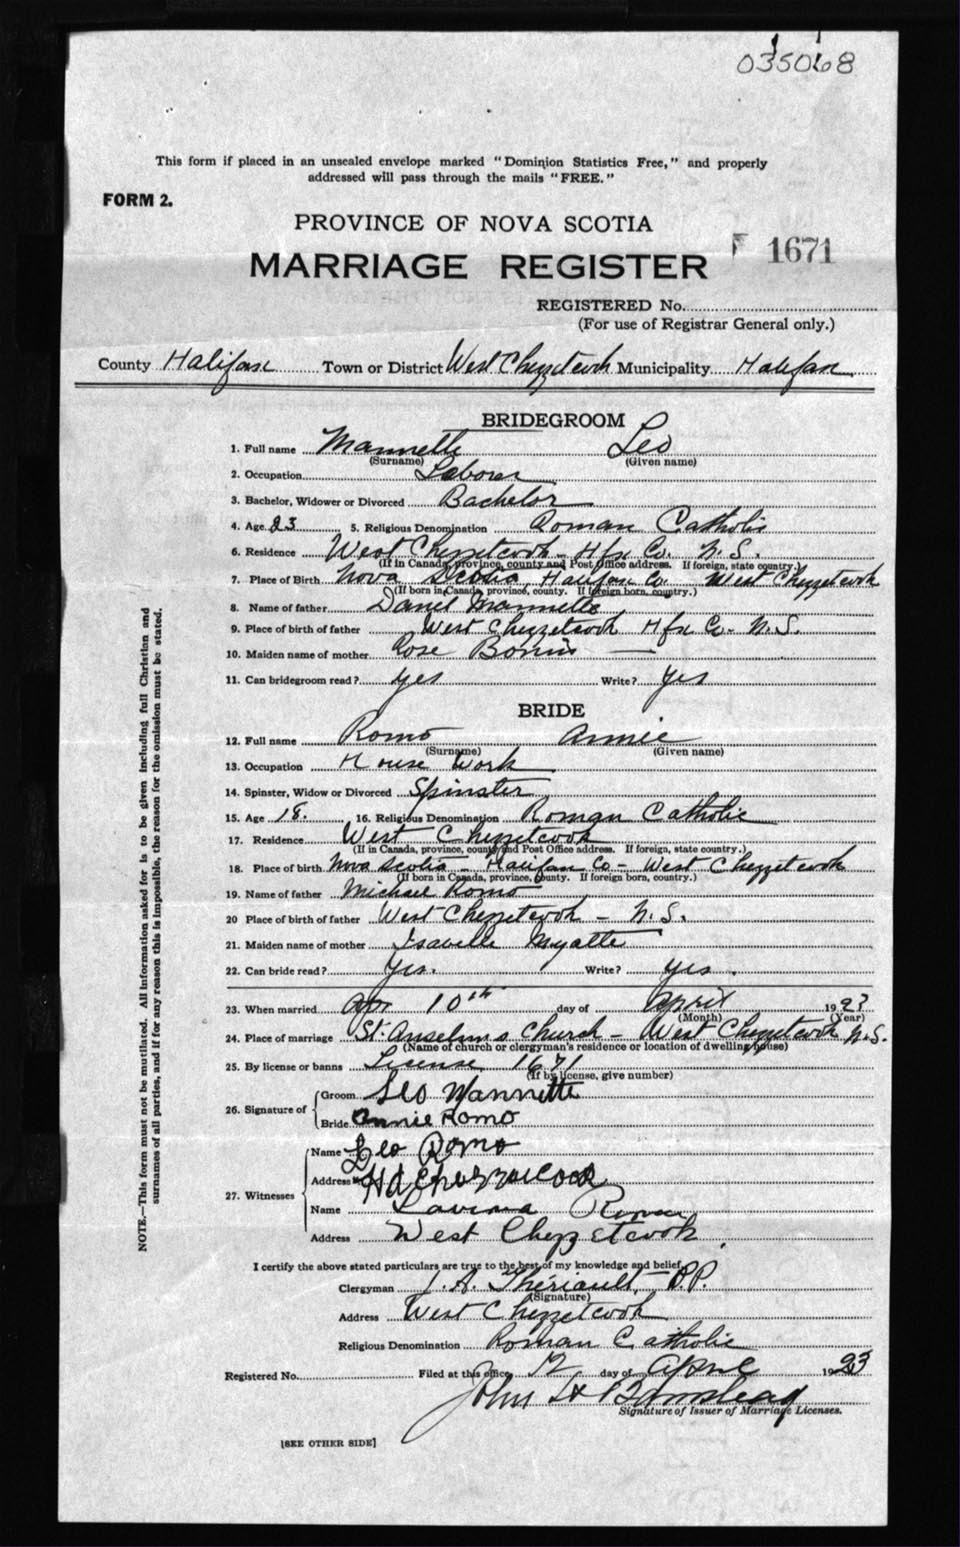 035068
This form if placed in an unsealed envelope marked "Dominion Statistics Free," and properly
addressed will pass through the mails "FREE."
FORM 2.
PROVINCE OF NOVA SCOTIA
1671
MARRIAGE REGISTER
REGISTERED No.
(For use of Registrar General only.)
County Halifax Town or District West Chezzetcook Municipality Halifax
BRIDEGROOM
1. Full name Mannette Leo
(Surname) (Given name)
2. Occupation Laborer
3. Bachelor, Widower or Divorced Bachelor
4. Age 23 5. Religious Denomination Roman Catholic
6. Residence West Chezzetcook - Hfx Co. N.S.
(If in Canada, province, county and Post Office address. If foreign, state country.)
7. Place of Birth Nova Scotia, Halifax Co. West Chezzetcook
(If born in Canada, province, county. If foreign born, country.)
8. Name of father Daniel Mannette
9. Place of birth of father West Chezzetcook Hfx Co- N.S.
10. Maiden name of mother Rose
11. Can bridegroom read? yes Write? yes
BRIDE
12. Full name Romo Annie
(Surname) (Given name)
13. Occupation House Work
14. Spinster, Widow or Divorced Spinster
15. Age 18. 16. Religious Denomination Roman Catholic
17. Residence West Chezzetcook
(If in Canada, province, county and Post Office address. If foreign, state country.)
18. Place of birth Nova Scotia - Halifax Co - West Chezzetcook
(If born in Canada, province, county. If foreign born, country.)
19. Name of father Michael Romo
20 Place of birth of father West Chezzetcook - N.S.
21. Maiden name of mother Isavelle Myatte
22. Can bride read? Yes. Write? yes.
23. When married Apr 10th day of April 1923
(Month) (Year)
24. Place of marriage St. Anselms Church - West Chezzetcook N.S.
(Name of church or clergyman's residence or location of dwelling house)
25. By license or banns License 1671
(If by license, give number)
26. Signature of Groom Leo Mannette
Bride Annie Romo
27. Witnesses Name Leo Romo
Address
Name Lavina
Address West Chezzetcook.
I certify the above stated particulars are true to the best of my knowledge and belief.
Clergyman J. A. Thériault, P.P.
(Signature)
Address West Chezzetcook
Religious Denomination Roman Catholic
Registered No. Filed at this office 12 day of April 1923
John
Signature of Issuer of Marriage Licenses.
[SEE OTHER SIDE]
NOTE.—This form must not be mutilated. All information asked for is to be given including full Christian and
surnames of all parties, and if for any reason this is impossible, the reason for the omission must be stated.